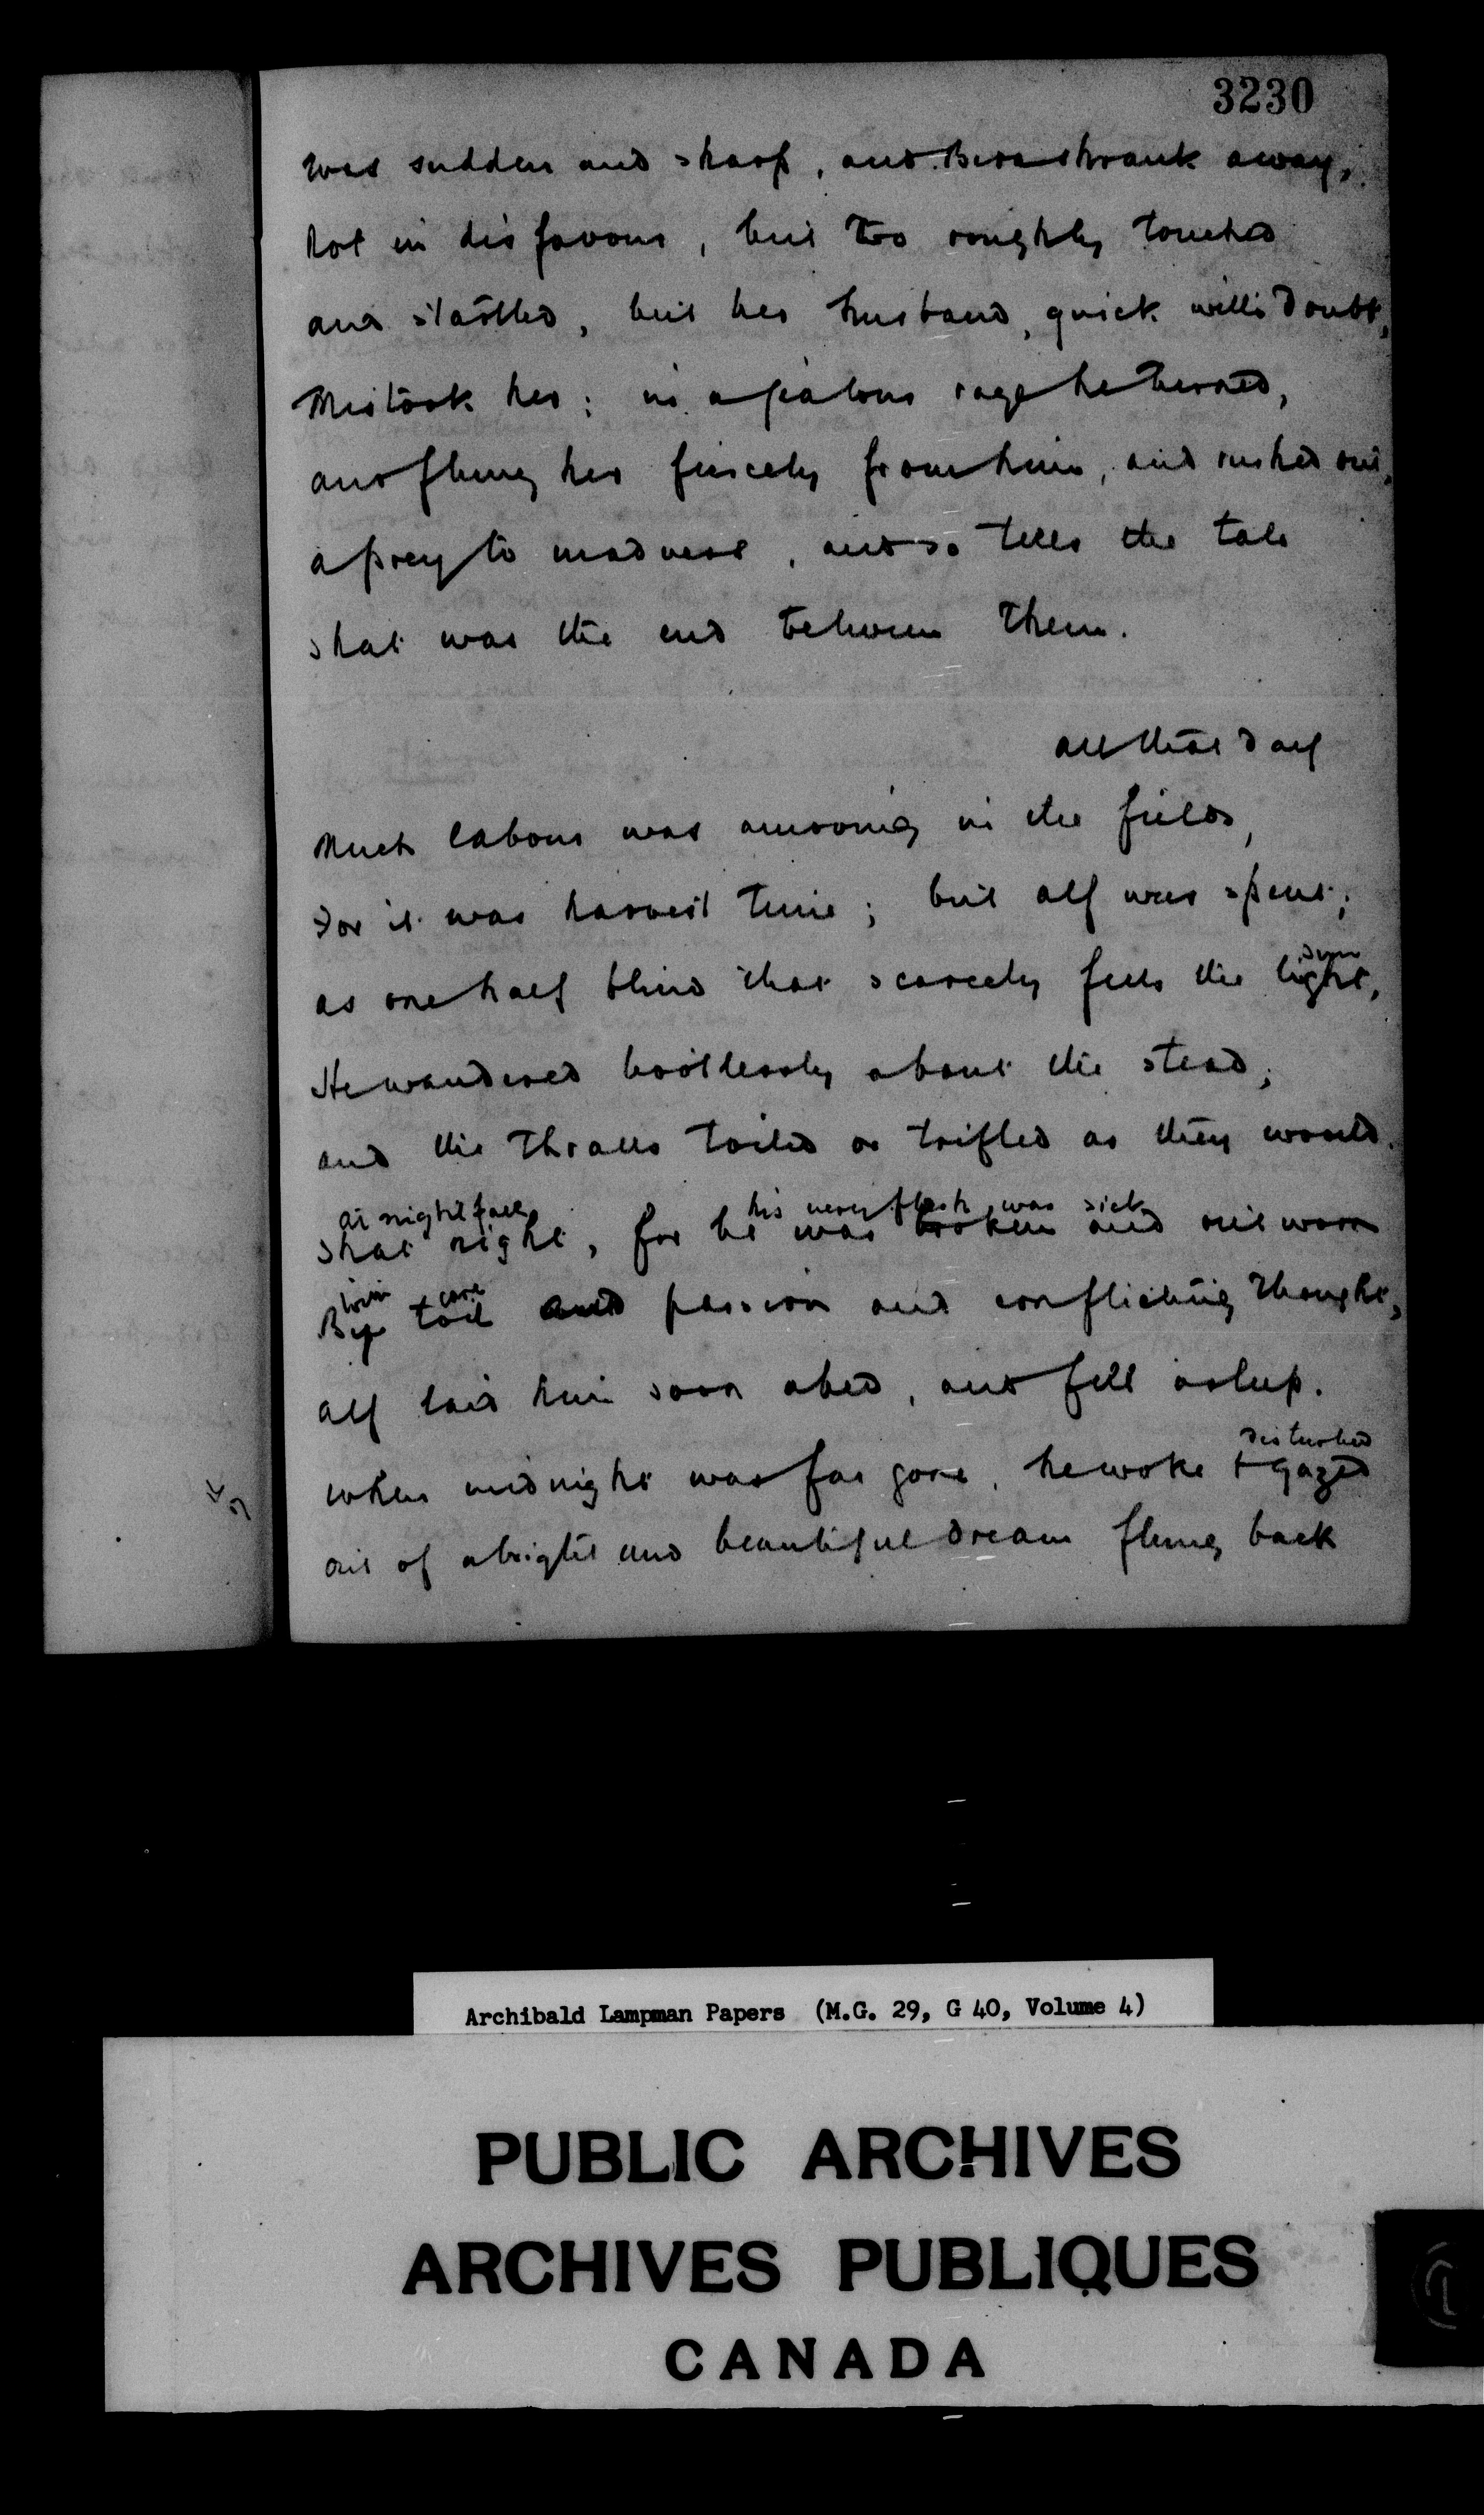 3230
Was sudden and sharp, and Bera shrank away,
Not in disfavour, but too roughly touched
And startled, but her husband, quick with doubt,
Mistook her: in a jealous rage he turned,
And flung her fiercely from him, and rushed out,
A prey to madness, and so tells the tale
That was the end between them.
All that day
Much labour was in the fields,
For it was harvest time; but Alf was spent;
As one half blind that scarcely feels the light,
sun
He wandered bootlessly about the stead;
And the thralls toiled or trifled as they would.
At nightfall his very flesh was sick
That night, for he was broken and outworn
With + care
By toil and passion and conflicting thought,
Alf laid him soon abed, and fell asleep.
disturbed
When midnight was far gone, he woke + gazed
Out of a bright and beautiful dream flung back
Archibald Lampman Papers (M.G. 29, G 40, Volume 4)
PUBLIC ARCHIVES
ARCHIVES PUBLIQUES
CANADA